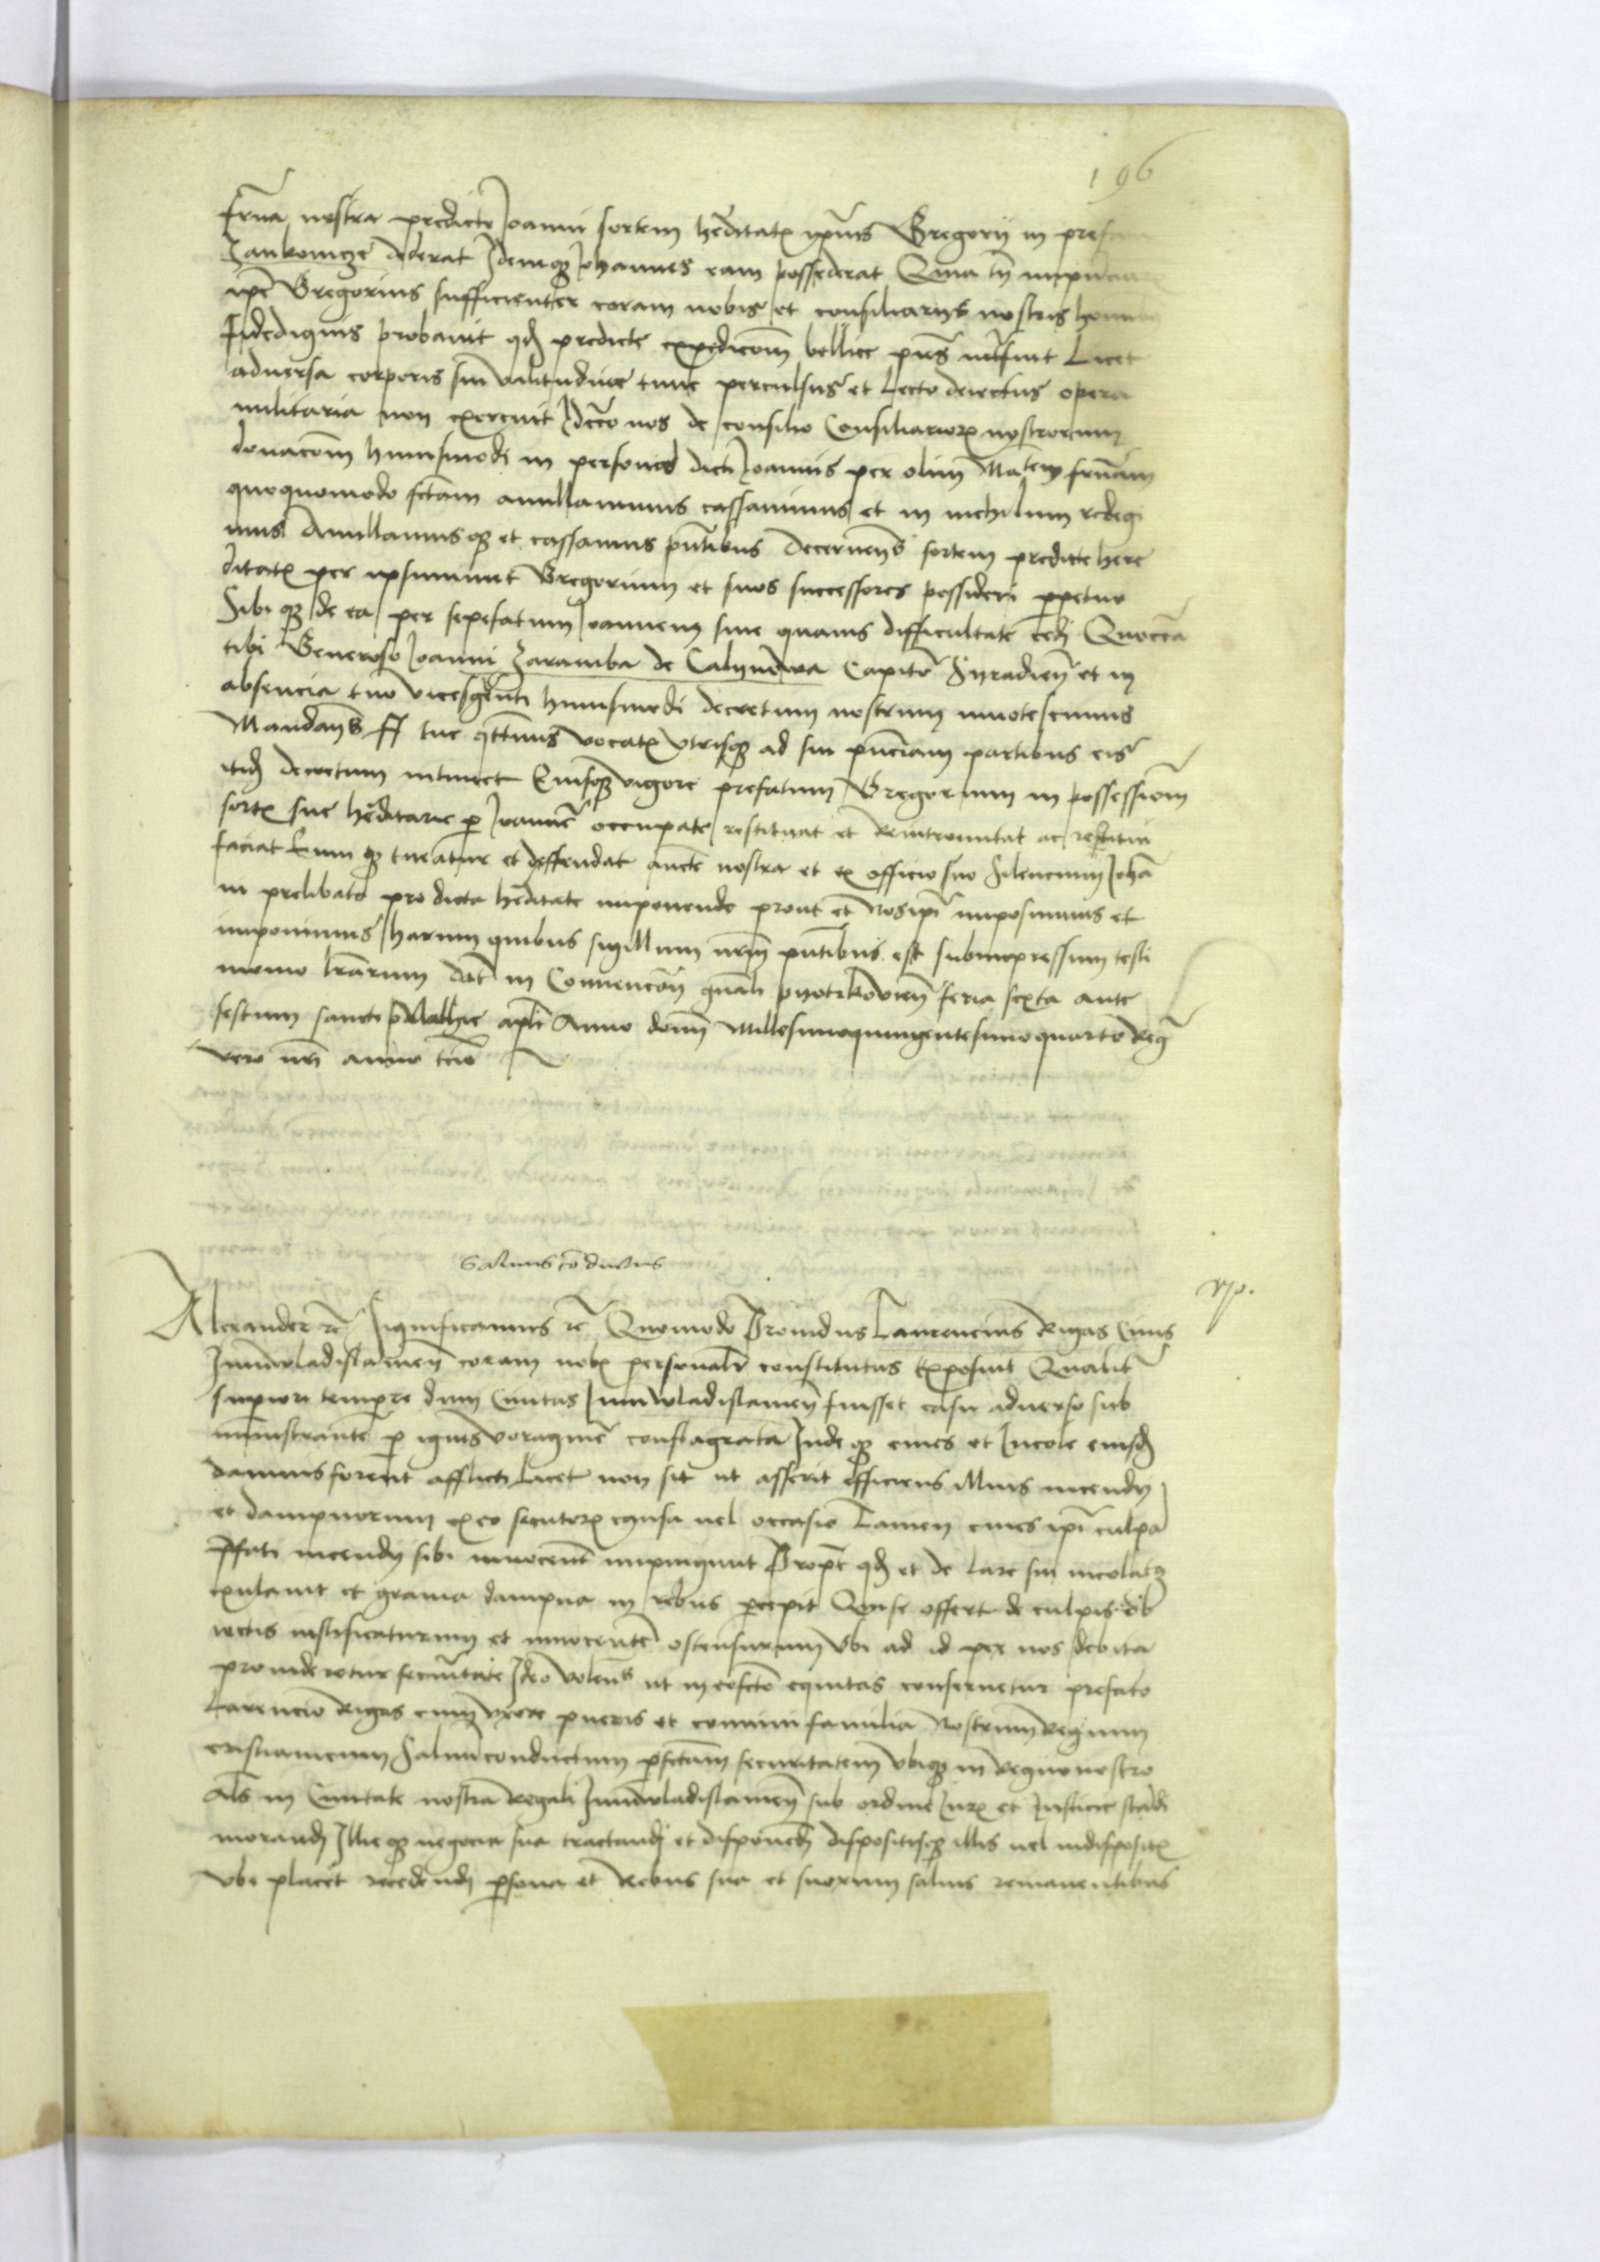 196
frna nostra predicto Joanni sortem heditatis ipius Gregorii in prefa
Jankowicze dederat Idemq Johannes eam possederat Quia tn
ipe Gregorius sufficienter coram nobis et consiliariis nostris homi
fidedignis probavit qd predicte expediconi bellice pns interfuit Licet
adversa corporis sui valitudine tunc perculsus et lecto deiectus opera
militaria non exercuit Idcirco nos de consilio Consiliariorum nostrorum
donacom huiusmodi in persona dicti Joannis per olim Matem frnam
quoquomodo fctam anullavimus cassavimus et in nichilum redegi
mus Anullamusq et cassamus pntibus decernens sortem predicte here
ditatis per ipsummet Gregorium et suos successores possideri ppetuo
Sibiq de ea per sepefatum Joannem sine quavis difficultate cedi Quocca
tibi Generoso Joanni Zaramba de Calynowa Capito Siradien et in
absencia tuo vicesgerenti huiusmodi decretum nostrum innotescimus
Mandans ff tue qtinus vocatis utrisq ad sui pnciam partibus eis
itid decretum intimet Eiusq vigore prefatum Gregorium in possessiom
sortis sue heditarie p Joanne occupate restituat et reintromittat ac restitui
faciat Eumq tueatur et deffendat aucte nostra et ex officio suo Silencium Joha
ni prelibato pro dicta heditate imponendo prout et Nos ipi imposuimus et
imponimus harum quibus sigillum nrm pntibus est subimpressum testi
monio lrarum dat in Convencon gnali pyotrkovien feria sexta ante
festum sancti Mathie apli Anno domi Millesimoquingentesimoquarto Reg
vero nri anno tcio
Salvus coductus
Alexander rc Significamus rc Quomodo Providus Laurencius Rigas Civis
Juniwladislavien coram nobis personalr constitutus Exposuit Qualitr
superiori tempore dum Civitas Juniwladislavien fuisset casu adverso sub
ministrante p ignis voragine conflagrata Indeq cives et Incole eiusd
damnis forent afflicti licet non sit ut asserit efficiens illius incendy
et dampnorum ex eo secutorum causa vel occasio Tamen cives ipi culpa
pfati incendy sibi innocenti impingunt Propt qd et de lare sui incolatq
exulavit et gravia dampna in rebus pcepit Qui se offert de culpis ob
iectis iustificaturum et innocente ostensurum Ubi ad id per nos debita
provideretur securitate Ideo volens ut in eofcto equitas conservetur prefato
Larencio Rigas cum uxore pueris et comuni familia Nostrum regium
cristianicum Salvumconductum pfctam securitatem ubiq in regno nostro
als in Civitate nostra Regali Juniwladislavien sub ordine Juris et Justicie standi
morandi Illicq negocia sua tractandi et disponendi dispositisq illis vel indispositis
Ubi placet recedendi psona et Rebus sua et suorum salvis remanentibus